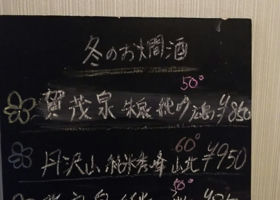 冬のお燗酒
50°
賀茂泉 朱泉 純吟 広島 ¥850
60°
丹沢山 純米秀峰 山北 ¥950
50°